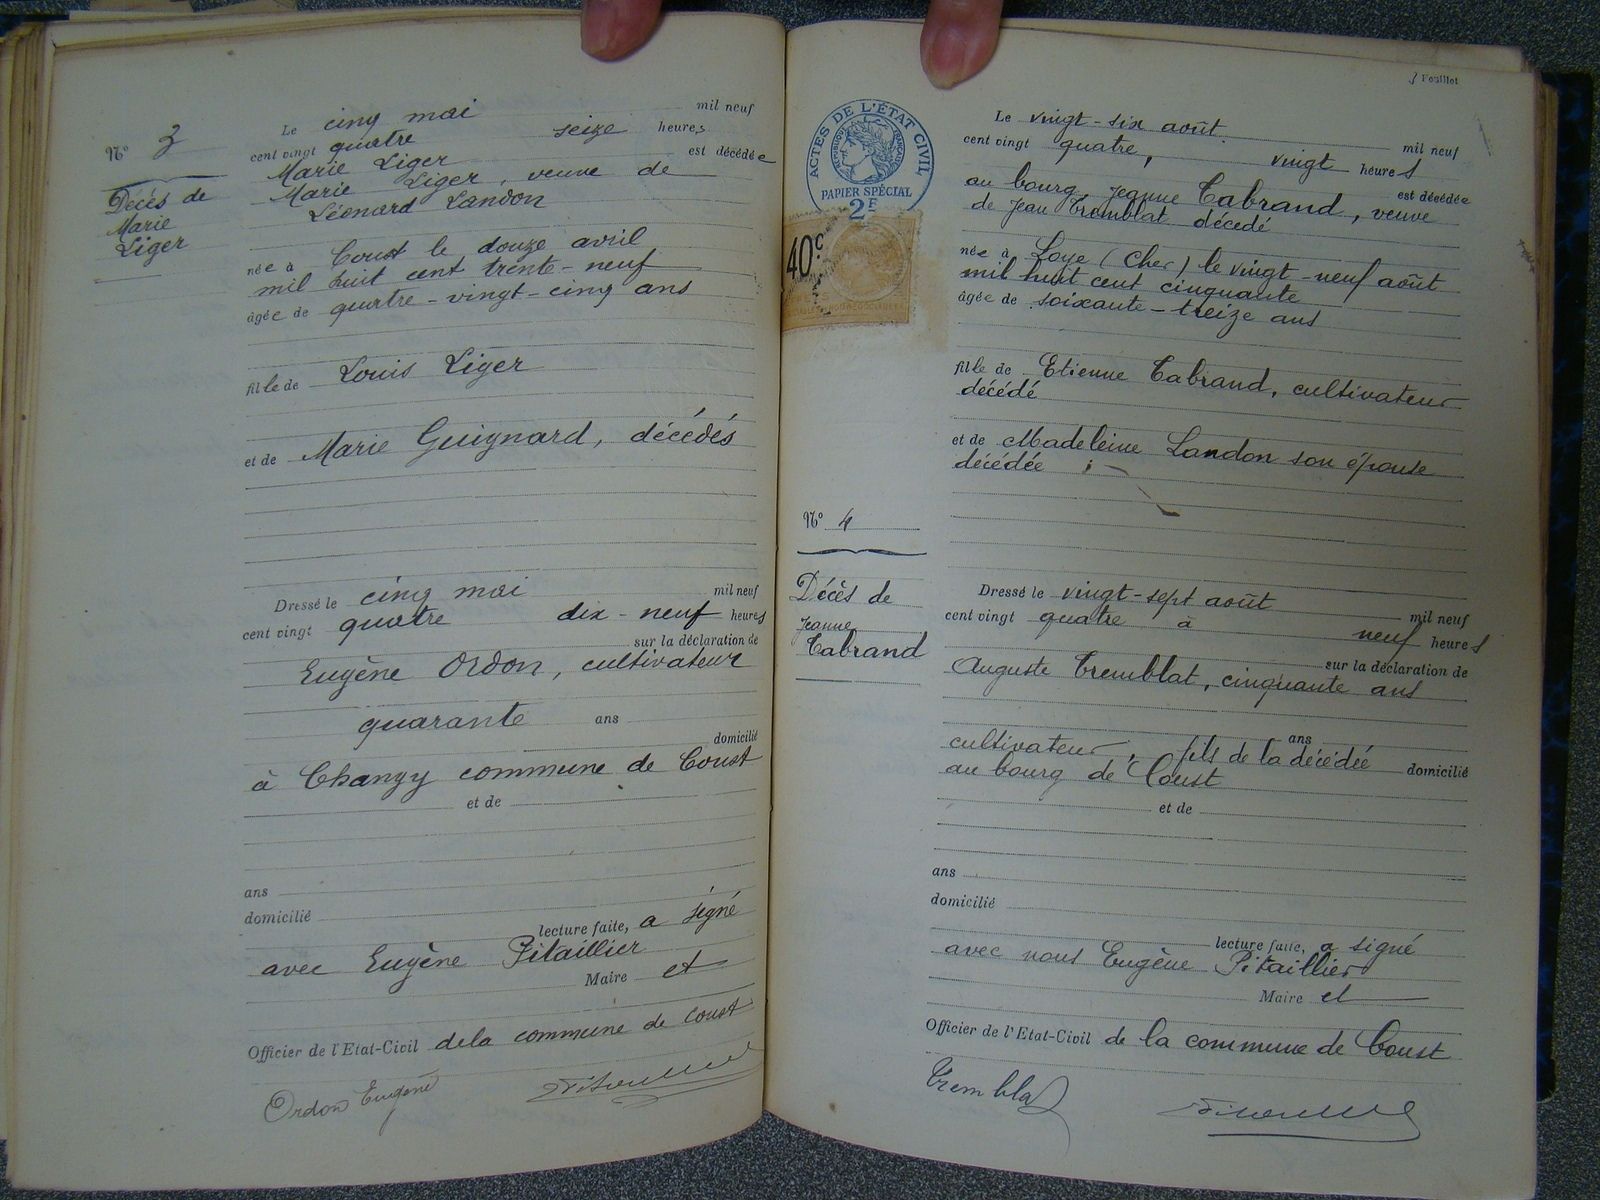 N° 3
Décès de
Marie
Liger
Le cinq mai mil neuf
cent vingt quatre seize heures
Marie Liger est décédée
Marie Liger, veuve de
Léonard Landon
née à Coust le douze avril
mil huit cent trente-neuf
âgée de quatre-vingt-cinq ans
fille de Louis Liger
et de Marie Guignard, décédés
Dressé le cinq mai mil neuf
cent vingt quatre dix-neuf heures
sur la déclaration de
Eugène Ordon, cultivateur
quarante ans
domicilié
à Changy commune de Coust
et de
ans
domicilié
lecture faite, a signé
avec Eugène Pitaillier
Maire et
Officier de l'Etat-Civil de la commune de Coust
Ordon Eugène
3 Feuillet
ACTES DE L'ÉTAT CIVIL
RÉPUBLIQUE FRANÇAISE
PAPIER SPÉCIAL
2F
40c
N° 4
Décès de
Jeanne
Tabrand
Le vingt-six août mil neuf
cent vingt quatre, vingt heures
au bourg, Jeanne Tabrand, veuve est décédée
de Jean Tremblat décédé
née à Loye (Cher) le vingt-neuf août
mil huit cent cinquante
âgée de soixante-treize ans
fille de Etienne Tabrand, cultivateur
décédé
et de Madeleine Landon son épouse
décédée
Dressé le vingt-sept août mil neuf
cent vingt quatre à neuf heures
sur la déclaration de
Auguste Tremblat, cinquante ans
ans
cultivateur, fils de la décédée domicilié
au bourg de Coust
et de
ans
domicilié
lecture faite, a signé
avec nous Eugène Pitaillier
Maire et
Officier de l'Etat-Civil de la commune de Coust
Tremblat